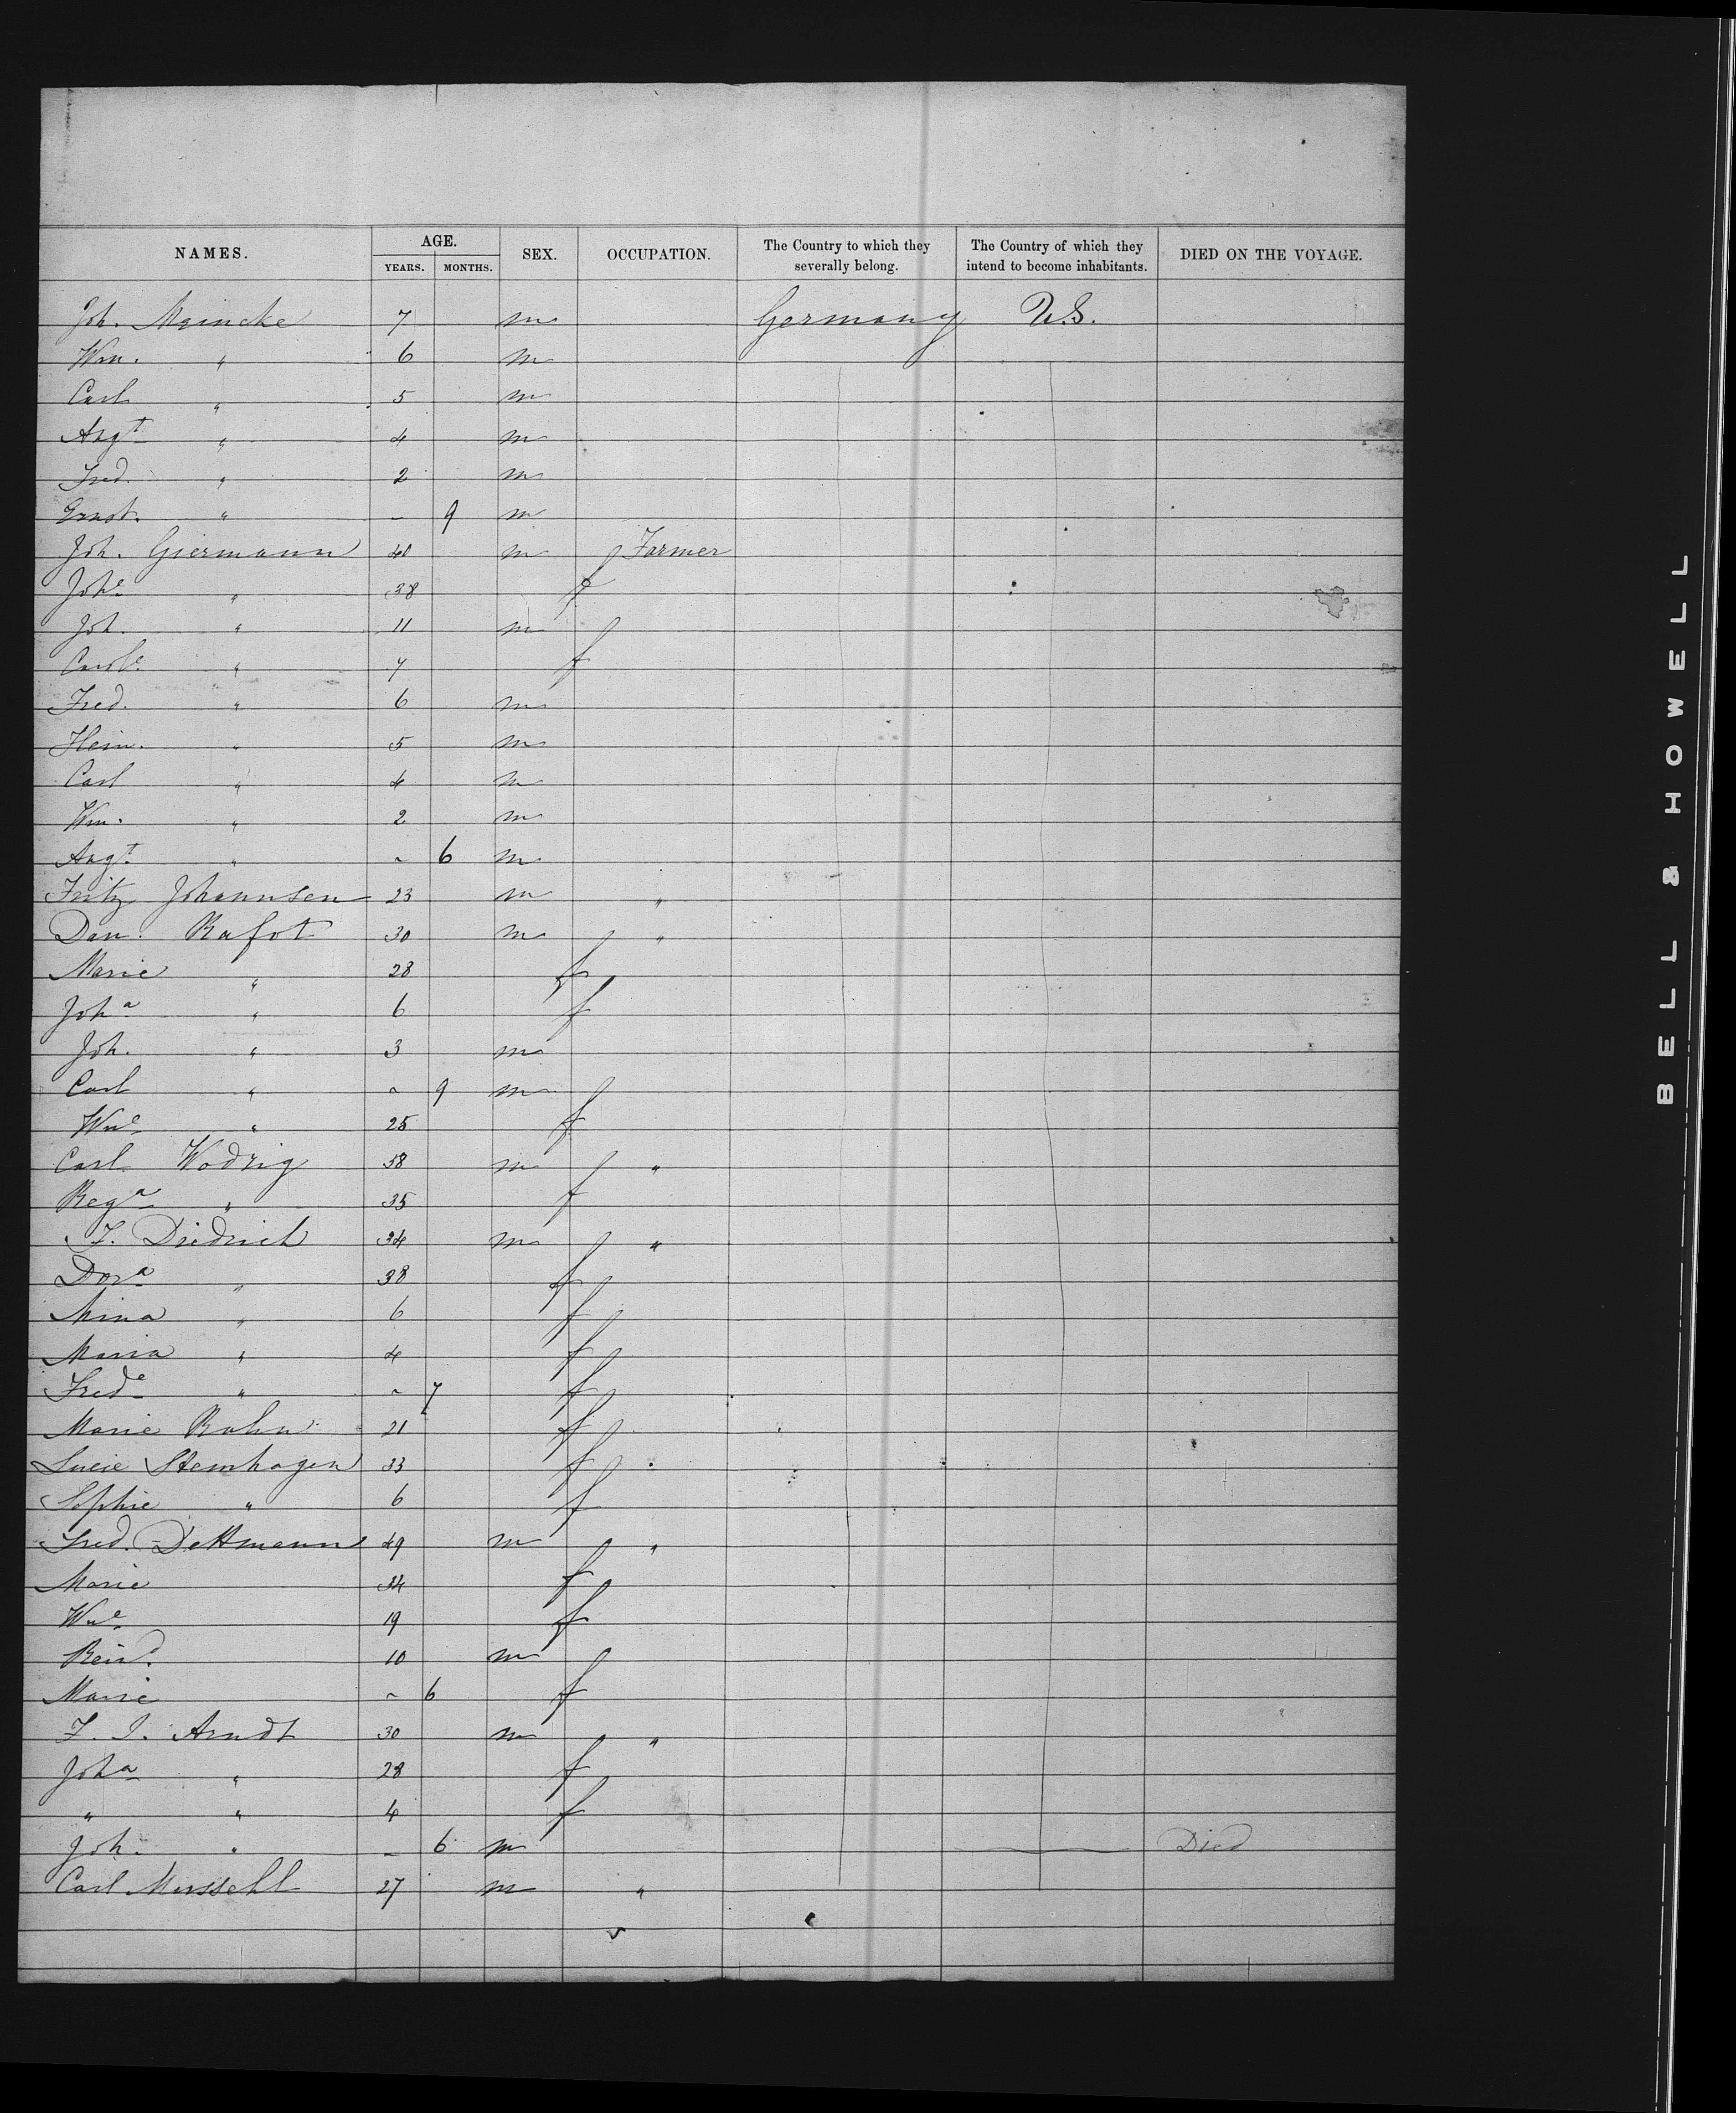 NAMES. AGE. SEX. OCCUPATION. The Country to which they severally belong. The Country of which they intend to become inhabitants. DIED ON THE VOYAGE.
YEARS. MONTHS.
Joh. Meincke 7 m Germany U.S.
Wm. " 6 m
Carl " 5 m
Augt " 4 m
Fred. " 2 m
Ernst. " - 9 m
Joh. Giermann 40 m Farmer
Johe " 38 f
Joh. " 11 m
Carole " 7 f
Fred. " 6 m
Hein. " 5 m
Carl " 4 m
Wm. " 2 m
Augt " ~ 6 m
Fritz Johannsen 23 m "
Dan. Rafot 30 m "
Marie " 28 f
Joha " 6 f
Joh. " 3 m
Carl " ~ 9 m
Wme " 25 f
Carl Wodrig 38 m "
Rega " 35 f
F. Diedrich 34 m "
Dora " 38 f
Mina " 6 f
Maria " 4 f
Frede " ~ 7 f
Marie Rahn 21 f
Lucie Stemhagen 33 f
Sophie " 6 f
Fred. Dettmann 49 m "
Marie 34 f
Wme 19 f
Reind. 10 m
Marie ~ 6 f
F. J. Arndt 30 m "
Joha " 28 f
" " 4 f
Joh. " - 6 m Died
Carl Mussehl 27 m "
BELL & HOWELL